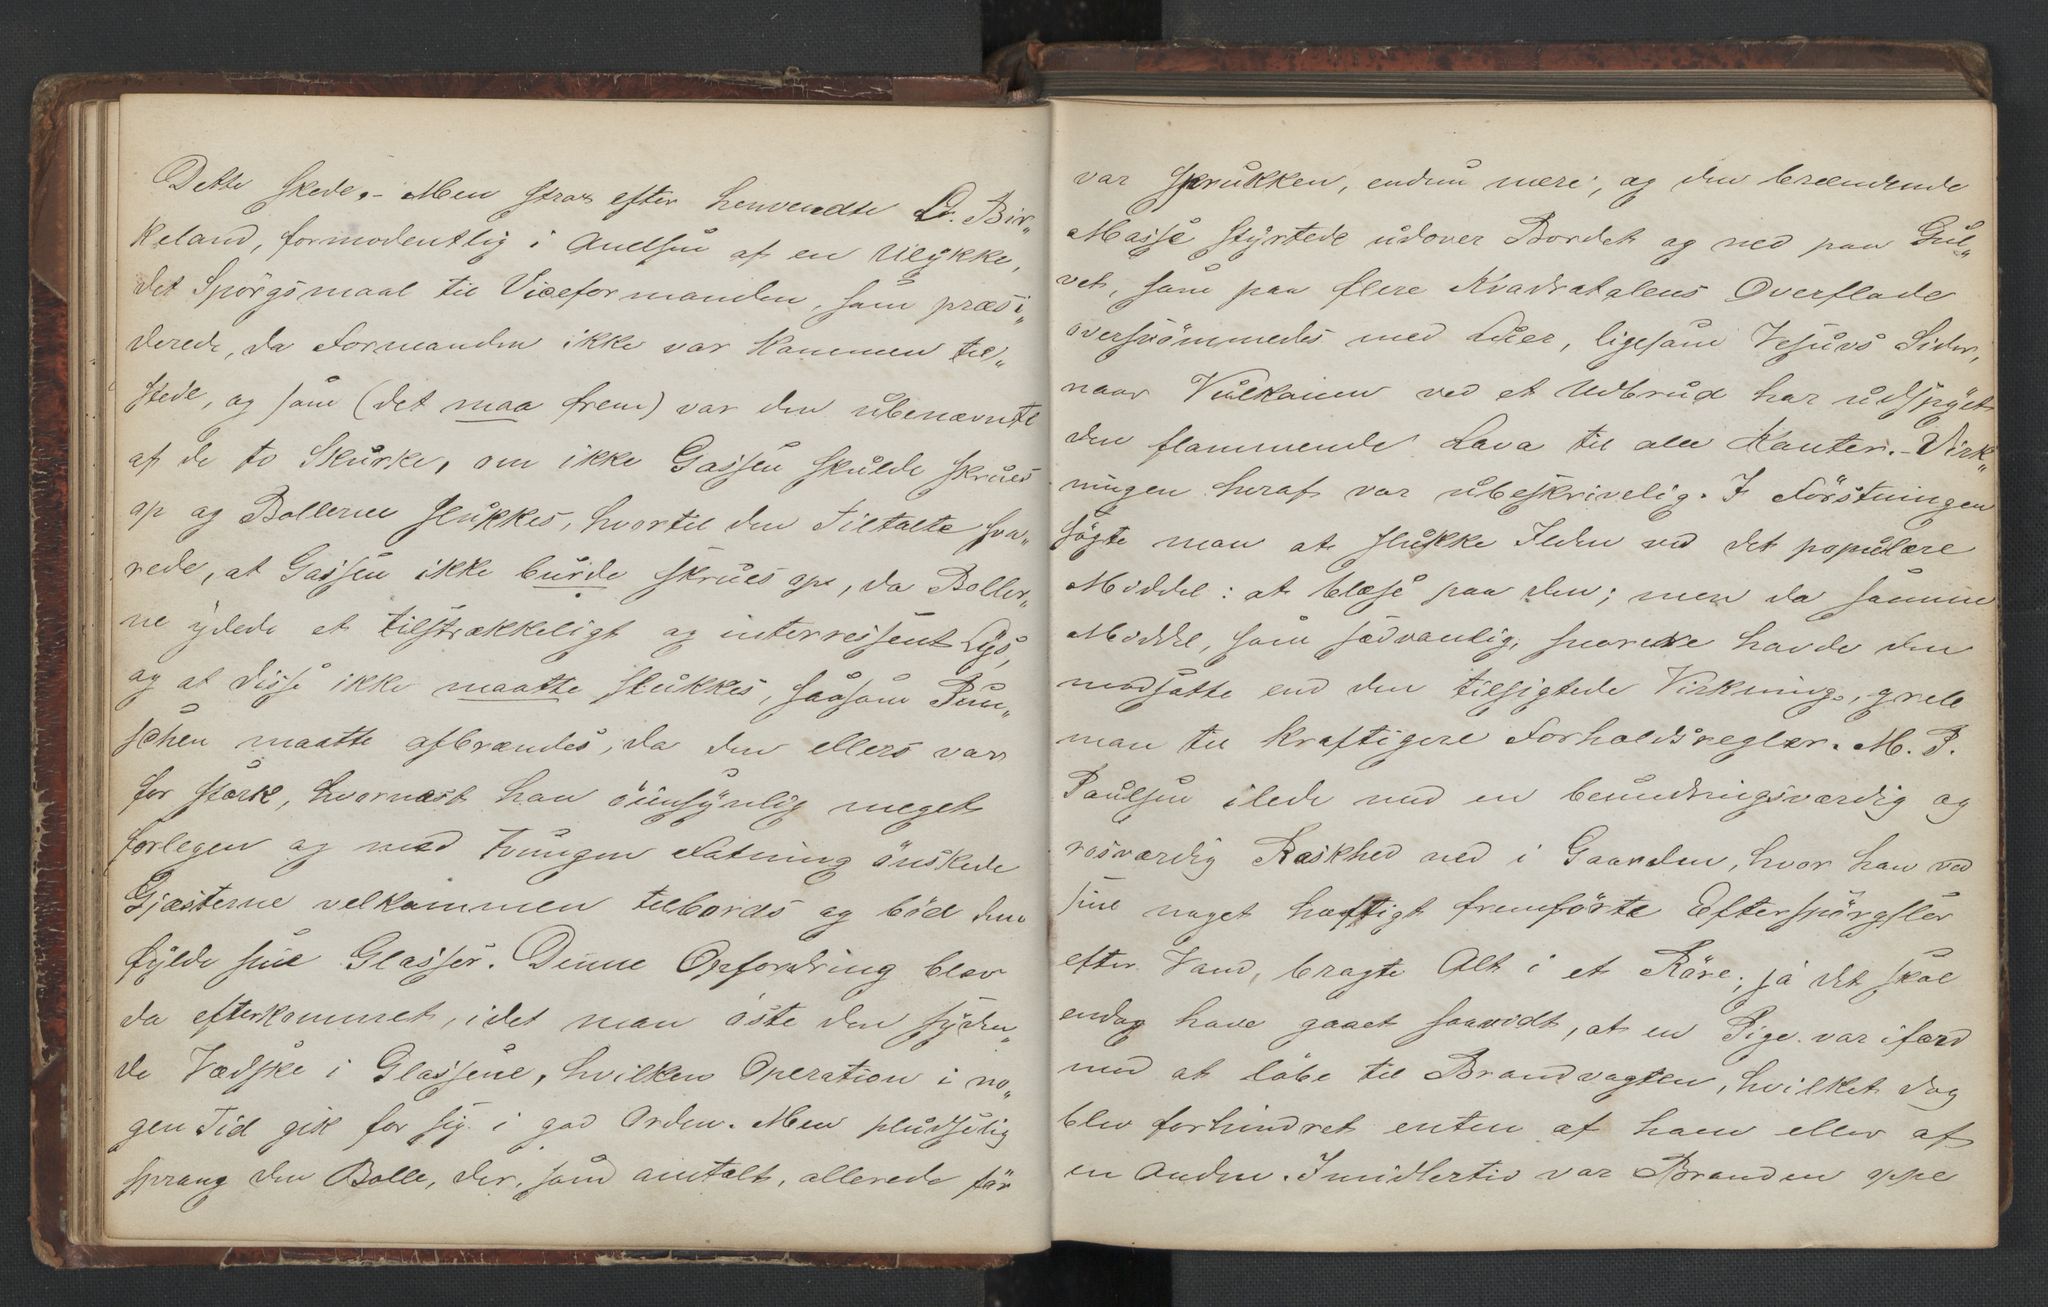 Dette skede. - Men strax efter henvendte Dr. Bir„
keland, formodentlig i Anelsen af en Ulykke,
det Spörgsmaal til Viceformanden, som præsi„
derede, da Formanden ikke var kommen til„
stede, og som (det maa frem) var den ubenævnte
af de to Skurke, om ikke Gassen skulde skrues
op og Bollerne slukkes, hvortil den Tiltalte sva„
rede, at Gassen ikke burde skrues op, da Boller„
ne ydede et tilstrækkeligt og interressent Lys,
og at disse ikke maatte slukkes, saasom Pun„
schen maatte afbrændes, da den ellers var
for stærk, hvornæst han öiensynlig meget
forlegen og med tvungen Fatning önskede
Gjæsterne velkommen tilbords og böd dem
fylde sine Glasser. Denne Opfordring blev
da efterkommet, idet man öste den syden„
de Vædske i Glassene, hvilken Operation i no„
gen Tid gik for sig i god Orden. Men pludselig
sprang den Bolle, der, som antalt, allerede för
var sprukken, endnu mere, og den brændende
Masse styrtede udover Bordet og ned paa Gul„
vet, som paa flere Kvadratalens Overflade
oversvömmedes med Luer, ligesom Vesuvs Sider,
naar Vulkanen ved et Udbrud har udspyet
den flammende Lava til alle Kanter. - Virk„
ningen heraf var ubeskrivelig. I Förstningen
sögte man at slukke Ilden ved det populære
Middel: at blæse paa den; men da samme
Middel, som sædvanlig, snarere havde den
modsatte end den tilsigtede Virkning, greb
man til kraftigere Forholdsregler. M. P.
Paulsen ilede med en beundringsværdig og
rosværdig Raskhed ned i Gaarden, hvor han ved
sine noget hæftigt fremförte Efterspörgsler
efter Vand, bragte Alt i et Röre; ja det skal
endog have gaaet saavidt, at en Pige var ifærd
med at löbe til Brandvagten, hvilket dog
blev forhindret enten af ham eller af
en Anden. Imidlertid var Branden oppe